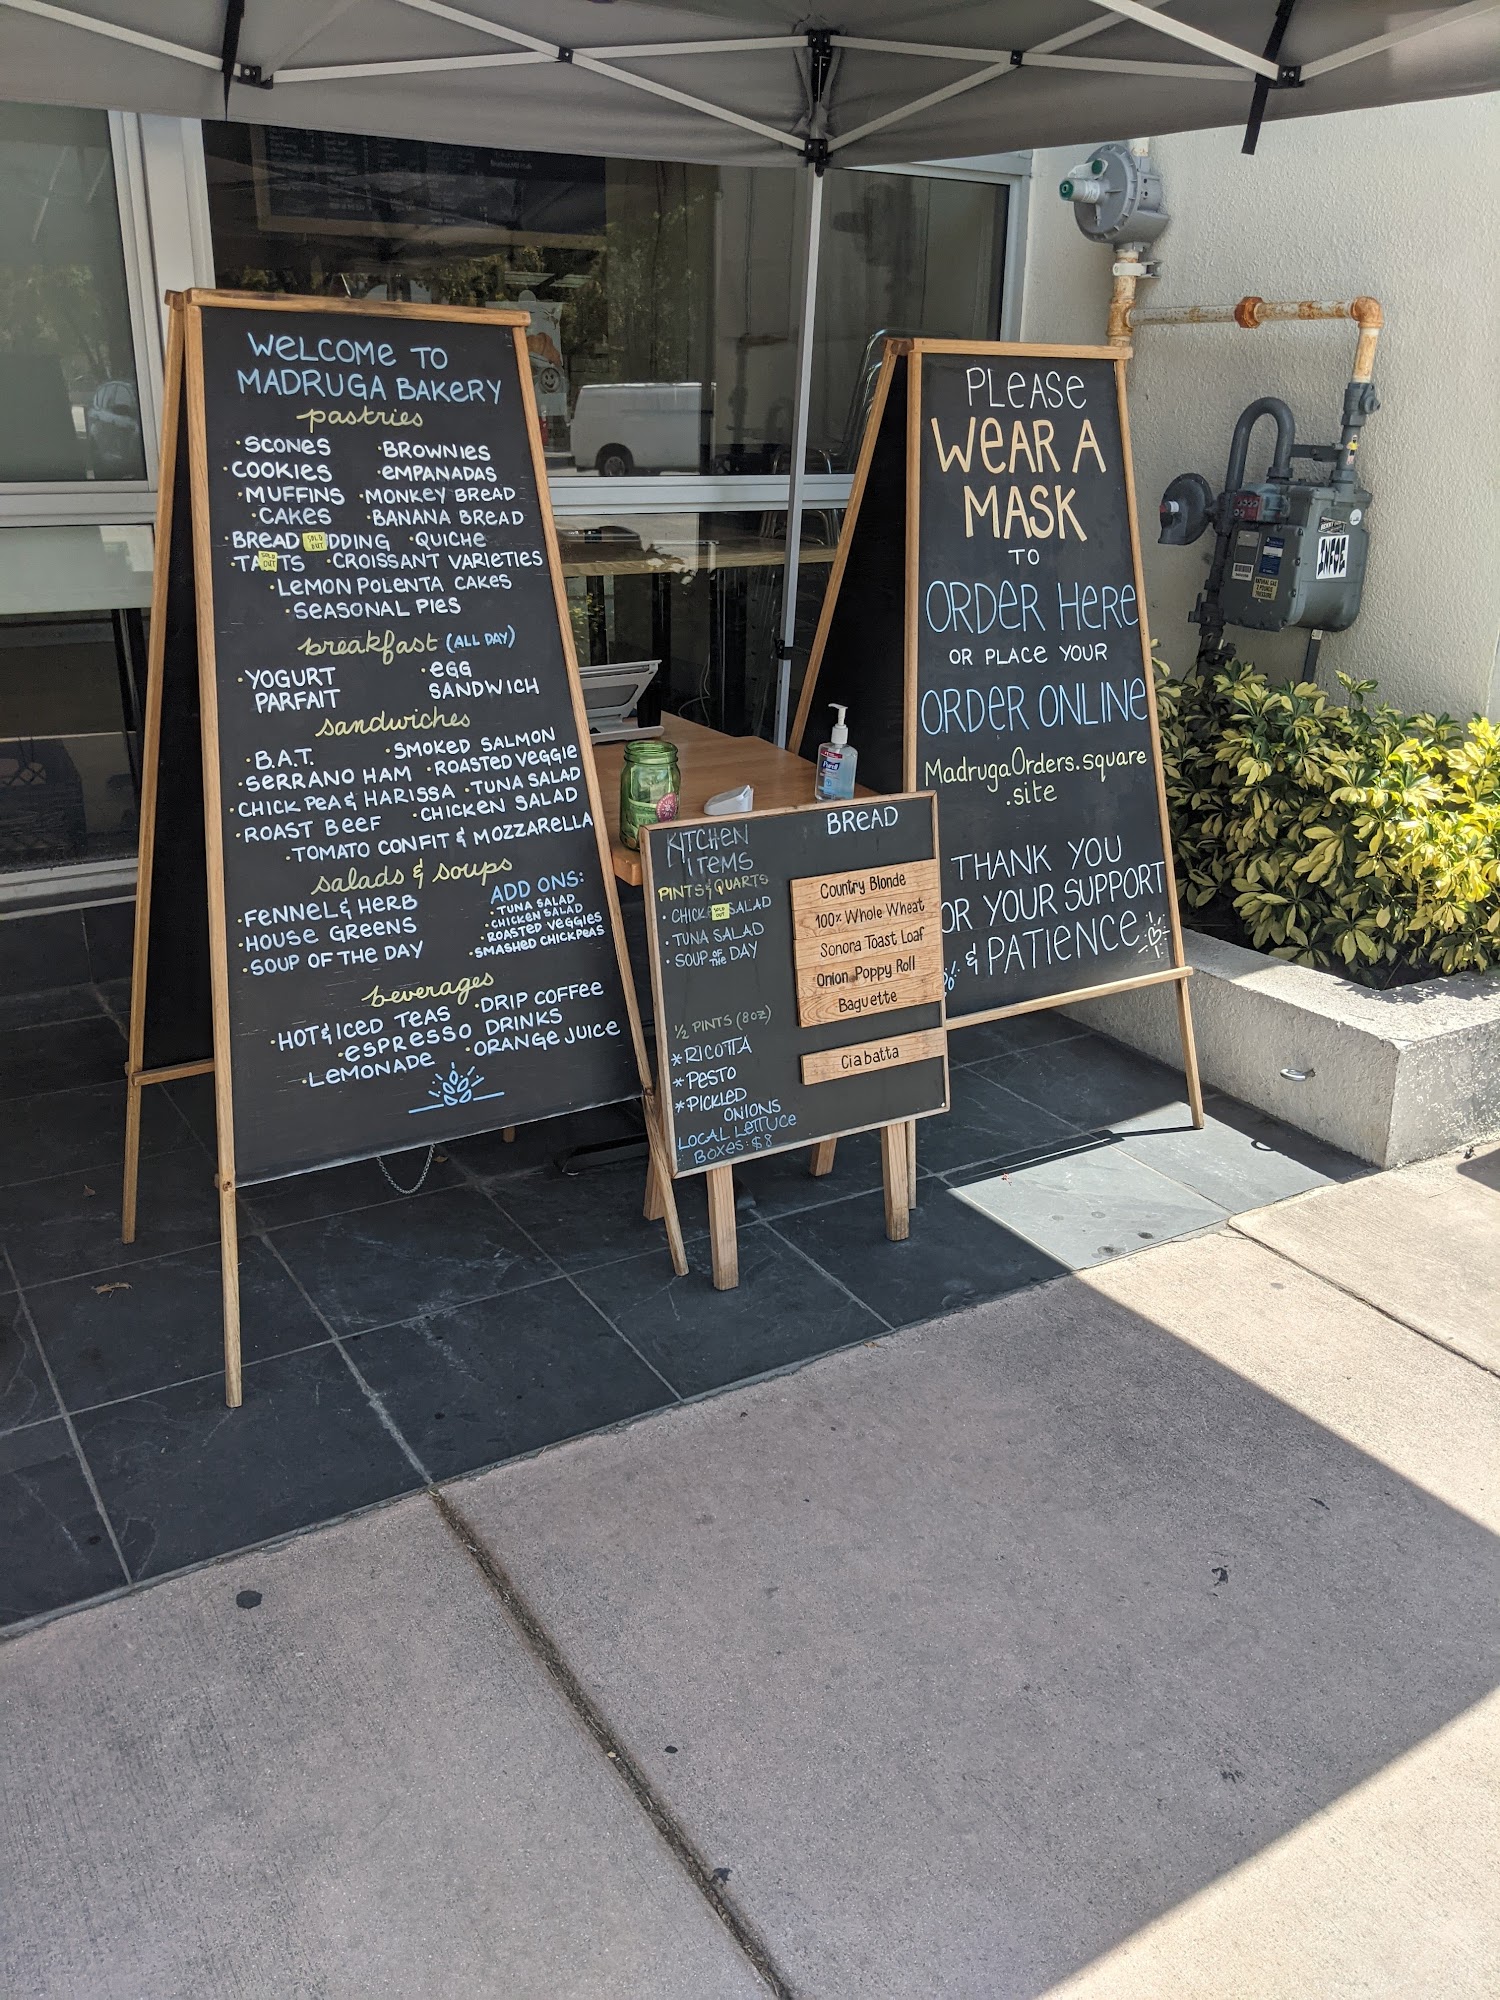 WELCOME TO
MADRUGA BAKERY
pastries
·SCONES ·BROWNIES
·COOKIES ·EMPANADAS
·MUFFINS ·MONKEY BREAD
·CAKES ·BANANA BREAD
·BREAD SOLD OUT DDING ·QUICHE
·TA SOLD OUT TS ·CROISSANT VARIETIES
·LEMON POLENTA CAKES
·SEASONAL PIES
breakfast (ALL DAY)
·YOGURT PARFAIT ·EGG SANDWICH
sandwiches
·B.A.T. ·SMOKED SALMON
·SERRANO HAM ·ROASTED VEGGIE
·CHICK PEA & HARISSA ·TUNA SALAD
·ROAST BEEF ·CHICKEN SALAD
·TOMATO CONFIT & MOZZARELLA
salads & soups
·FENNEL & HERB
·HOUSE GREENS
·SOUP OF THE DAY
ADD ONS:
·TUNA SALAD
·CHICKEN SALAD
·ROASTED VEGGIES
·SMASHED CHICKPEAS
beverages
·HOT & ICED TEAS ·DRIP COFFEE
·ESPRESSO DRINKS
·LEMONADE ·ORANGE JUICE
KITCHEN
ITEMS
PINTS & QUARTS
·CHICK SOLD OUT SALAD
·TUNA SALAD
·SOUP OF THE DAY
½ PINTS (8OZ)
*RICOTTA
*PESTO
*PICKLED
ONIONS
LOCAL LETTUCE
BOXES: $8
BREAD
Country Blonde
100% Whole Wheat
Sonora Toast Loaf
Onion Poppy Roll
Baguette
Ciabatta
PLEASE
WEAR A
MASK
TO
ORDER HERE
OR PLACE YOUR
ORDER ONLINE
MadrugaOrders.square
.site
THANK YOU
OR YOUR SUPPORT
& PATIENCE
Purell
INFOE